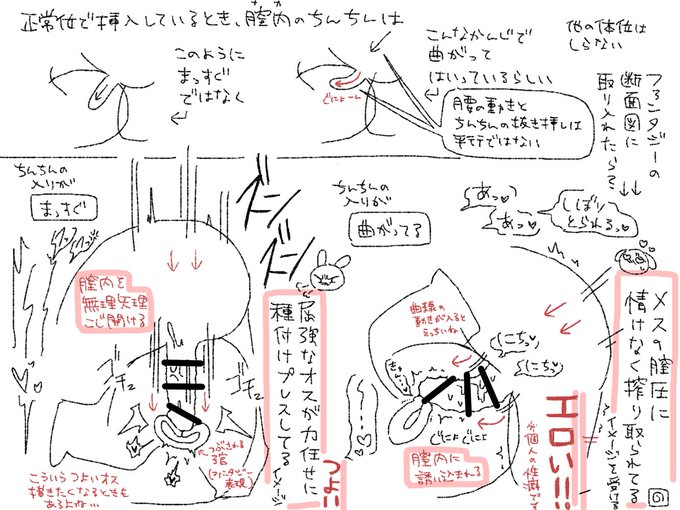 正常位で挿入しているとき、膣内のちんちんは
ナカ
このように
まっすぐ
ではなく
こんなかんじで
曲がって
はいっているらしい
ぐにょーん
腰の動きと
ちんちんの抜き挿しは
平行ではない
他の体位は
しらない
ファンタジーの
断面図に
取り入れたらさ
ちんちんの
入りが
まっすぐ
ドンドン
膣内を
無理矢理
こじ開ける
屈強なオスが力任せに
種付けプレスしてる
イメージ
つよい
つぶされる
子宮
(ファンタジー
表現)
こういうつよいオス
描きたくなるときも
あるよね…
ちんちんの
入りが
曲がってる
あっ
あっ
しぼり
とられるっ
曲線の
動きが入ると
えっちいね
にちっ
にちっ
ぐにょぐにょ
膣内に
誘い込まれる
エロい!!
※個人の性癖です
メスの膣圧に
情けなく搾り取られてる
イメージを受ける